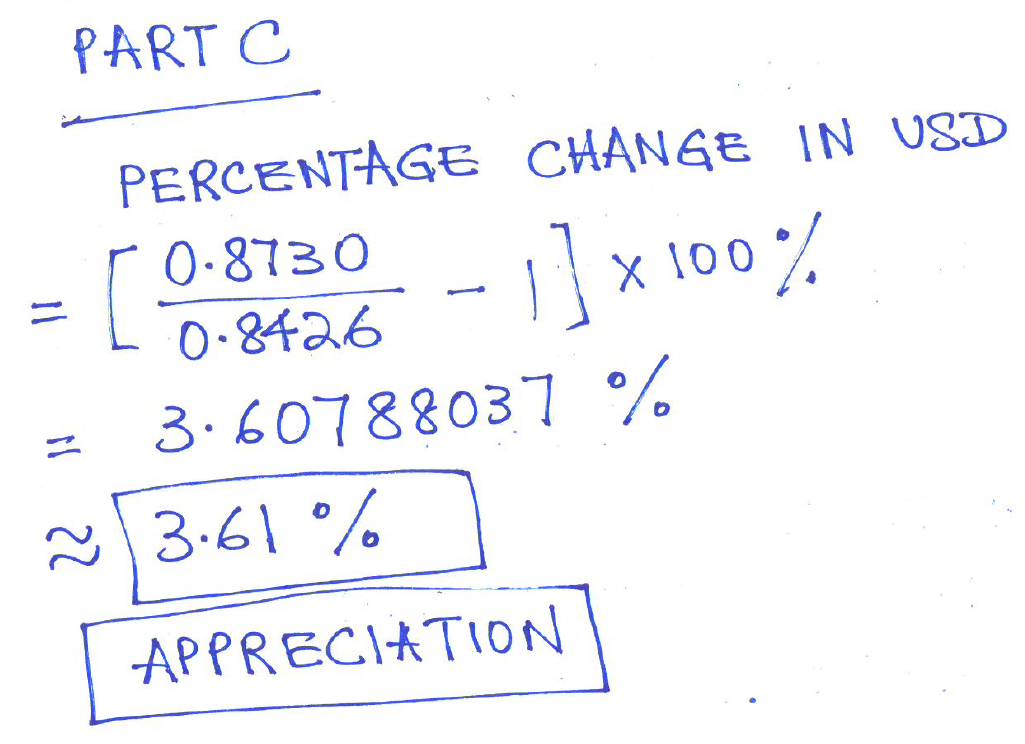 PART C
PERCENTAGE CHANGE IN USD
= [ 0.8730 / 0.8426 - 1 ] x 100 %
= 3.60788037 %
≈ 3.61 %
APPRECIATION